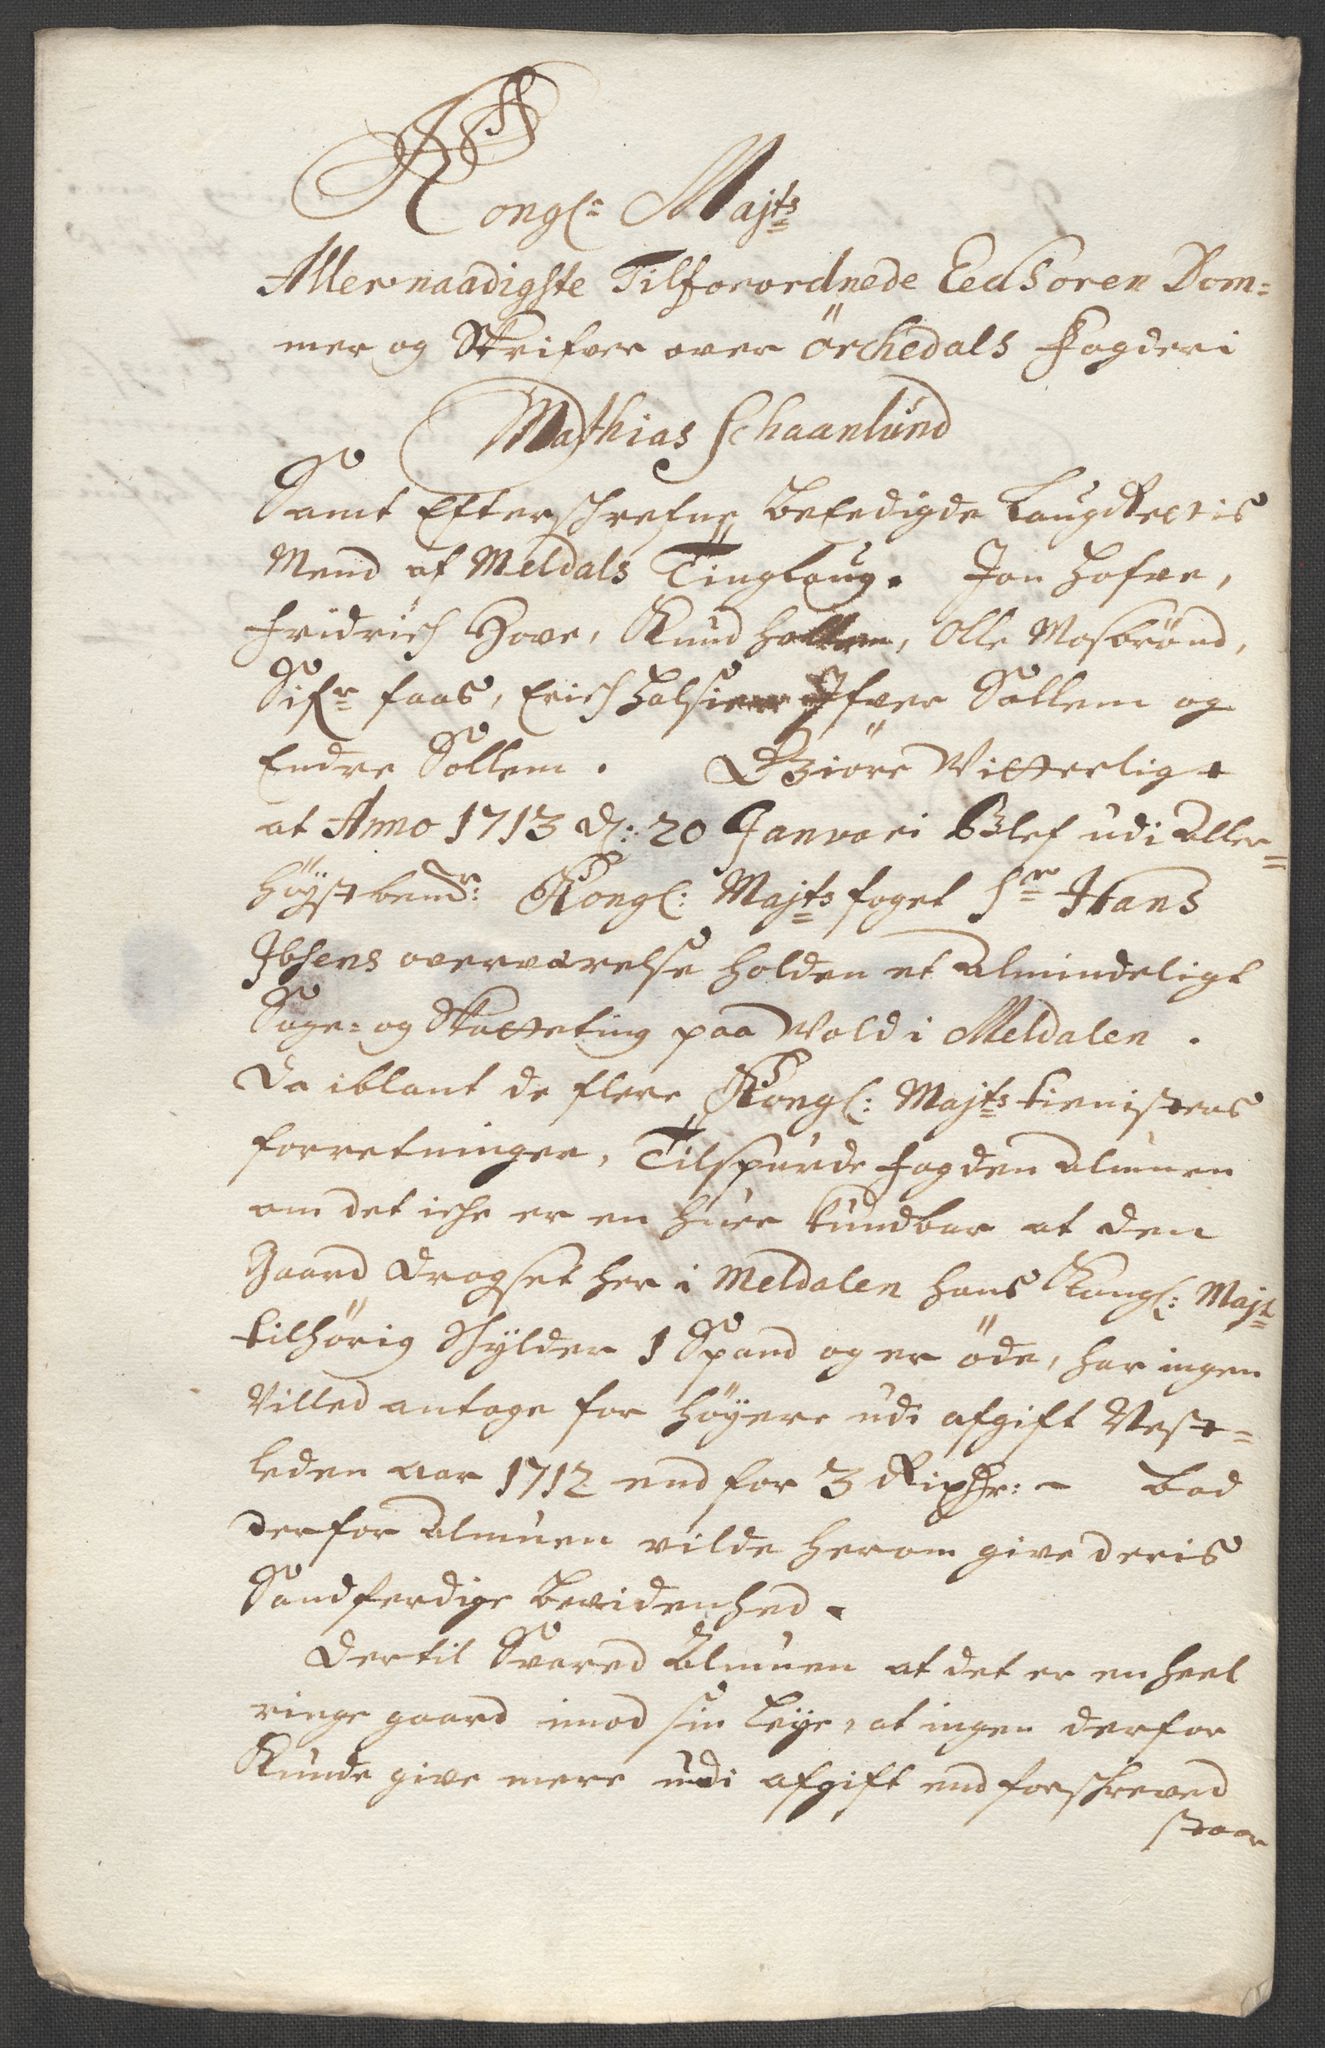 Kongl: Majts
Allernaadigste Tilforordnede Eedsoren Dom=
mer og Skrifver over Örchedals Fogderi
Mathias Schaanlund
Samt Efterschrefne Beeedigde LaugRettis
Mend af Meldals Tinglaug. Jon Hofve,
Fridrich Hove, Knud, Olle Mosbrönd,
Sifr faas, Erich Ifver Sollem og
Endre Sollem. Giöre Witterlig
at Anno 1713 d: 20 Janvari Blef udi Aller=
höystbemr: Kongl: Majts foget Sr Hans
Ibsens overværelse holden et Almindeligt
Sage= og Skatteting paa Wold i Meldalen.
Da iblant de flere Kongl: Majts tienisters
forretninger, Tilspurde fogden Almuen
om det iche er en huer kundbar at den
Gaard Dragset her i Meldalen hans Kongl: Majt
tilhörig Schylder 1 Spand og er öde, har ingen
Villed antage for höyere udi afgift Nest=
leden aar 1712 end for 3 Rixdr: - bad
derfor Almuen vilde herom give deris
Sandferdige Bevidenhed.
Dertil Svared Almuen at det er en heel
ringe gaard imod sin leye, at ingen derfor
Kunde give mere udi afgift end forschreved
staar